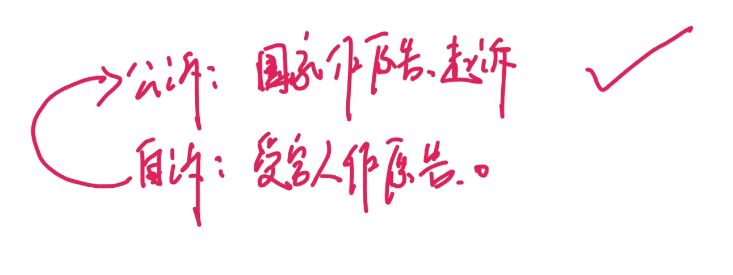 公诉：国家作原告、起诉
自诉：受害人作原告。